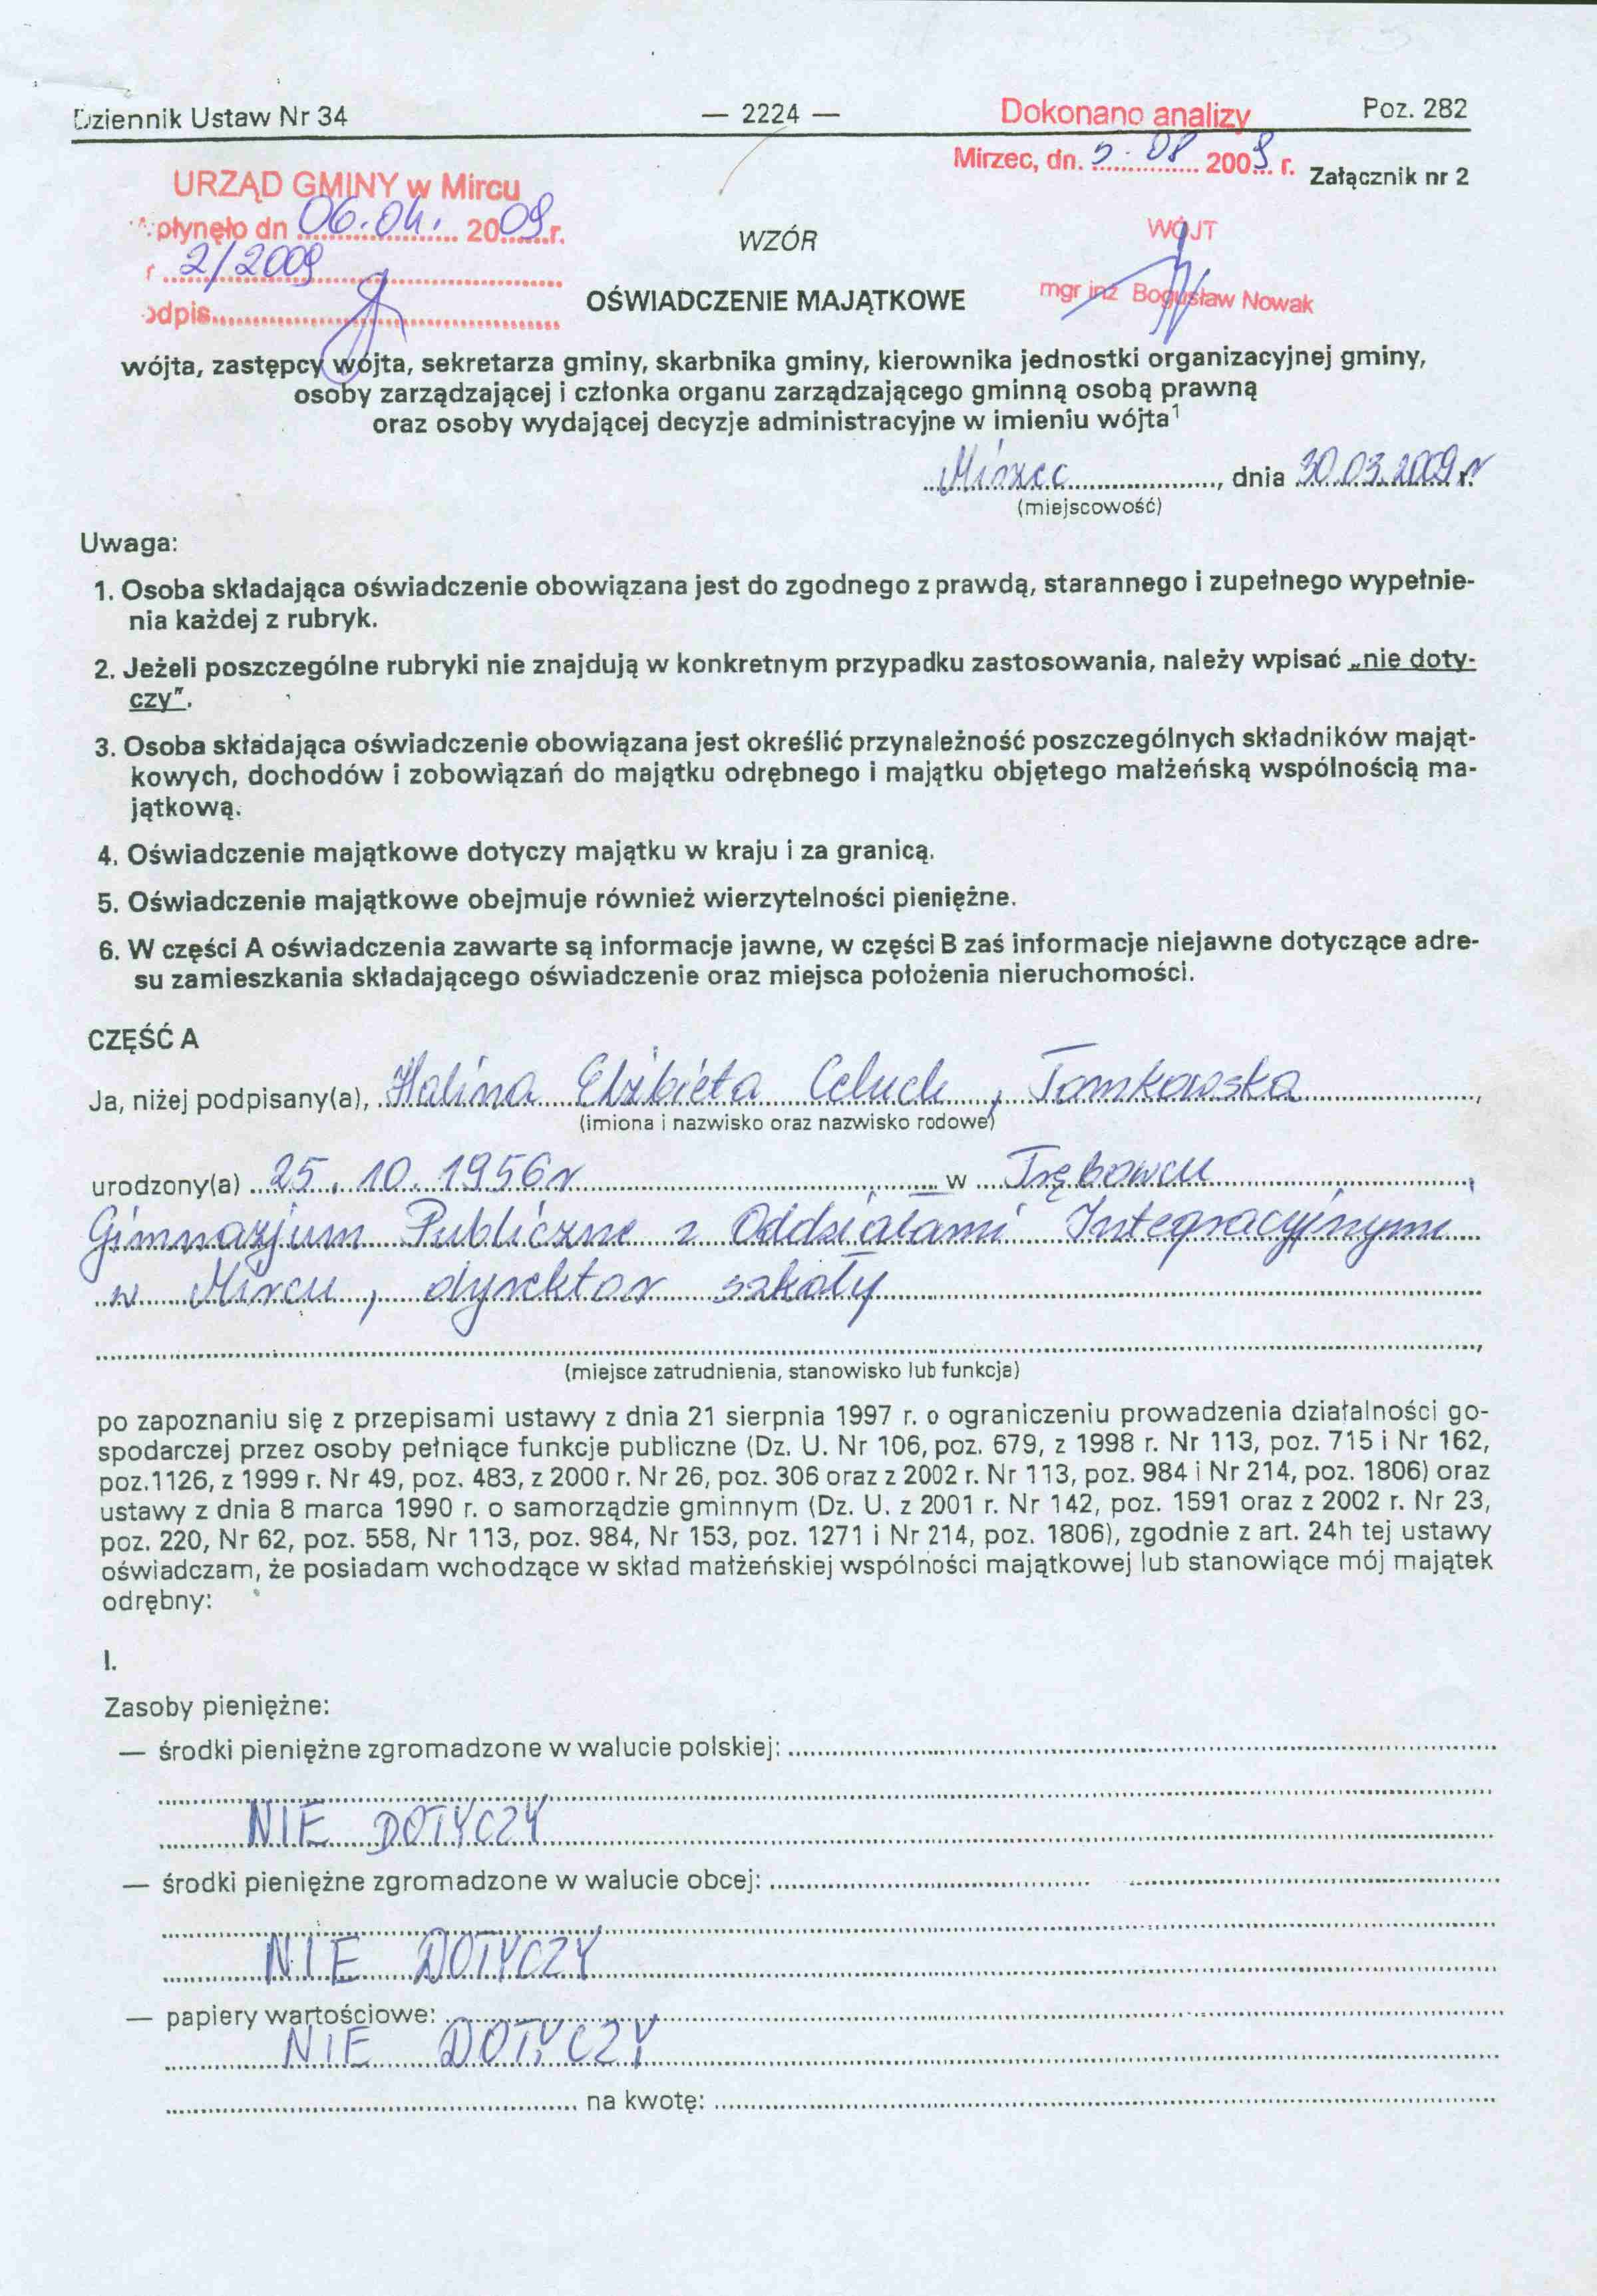 Dziennik Ustaw Nr 34 — 2224 — Poz. 282
Dokonano analizy
Mirzec, dn. 5.08 2009 r.
Załącznik nr 2
URZĄD GMINY w Mircu
płynęło dn 06.04. 2009 r.
r 2/2009
odpis
WÓJT
mgr inż Bogusław Nowak
WZÓR
OŚWIADCZENIE MAJĄTKOWE
wójta, zastępcy wójta, sekretarza gminy, skarbnika gminy, kierownika jednostki organizacyjnej gminy,
osoby zarządzającej i członka organu zarządzającego gminną osobą prawną
oraz osoby wydającej decyzje administracyjne w imieniu wójta¹
Mirzec, dnia 30.03.2009 r.
(miejscowość)
Uwaga:
1. Osoba składająca oświadczenie obowiązana jest do zgodnego z prawdą, starannego i zupełnego wypełnie-
nia każdej z rubryk.
2. Jeżeli poszczególne rubryki nie znajdują w konkretnym przypadku zastosowania, należy wpisać „nie doty-
czy”.
3. Osoba składająca oświadczenie obowiązana jest określić przynależność poszczególnych składników mająt-
kowych, dochodów i zobowiązań do majątku odrębnego i majątku objętego małżeńską wspólnością ma-
jątkową.
4. Oświadczenie majątkowe dotyczy majątku w kraju i za granicą.
5. Oświadczenie majątkowe obejmuje również wierzytelności pieniężne.
6. W części A oświadczenia zawarte są informacje jawne, w części B zaś informacje niejawne dotyczące adre-
su zamieszkania składającego oświadczenie oraz miejsca położenia nieruchomości.
CZĘŚĆ A
Ja, niżej podpisany(a), Halina Elżbieta Celuch, Tomkowska,
(imiona i nazwisko oraz nazwisko rodowe)
urodzony(a) 25.10.1956r w Trębowcu,
Gimnazjum Publiczne z Oddziałami Integracyjnymi
w Mircu, dyrektor szkoły
(miejsce zatrudnienia, stanowisko lub funkcja)
po zapoznaniu się z przepisami ustawy z dnia 21 sierpnia 1997 r. o ograniczeniu prowadzenia działalności go-
spodarczej przez osoby pełniące funkcje publiczne (Dz. U. Nr 106, poz. 679, z 1998 r. Nr 113, poz. 715 i Nr 162,
poz.1126, z 1999 r. Nr 49, poz. 483, z 2000 r. Nr 26, poz. 306 oraz z 2002 r. Nr 113, poz. 984 i Nr 214, poz. 1806) oraz
ustawy z dnia 8 marca 1990 r. o samorządzie gminnym (Dz. U. z 2001 r. Nr 142, poz. 1591 oraz z 2002 r. Nr 23,
poz. 220, Nr 62, poz. 558, Nr 113, poz. 984, Nr 153, poz. 1271 i Nr 214, poz. 1806), zgodnie z art. 24h tej ustawy
oświadczam, że posiadam wchodzące w skład małżeńskiej wspólności majątkowej lub stanowiące mój majątek
odrębny:
I.
Zasoby pieniężne:
— środki pieniężne zgromadzone w walucie polskiej:
NIE DOTYCZY
— środki pieniężne zgromadzone w walucie obcej:
NIE DOTYCZY
— papiery wartościowe:
NIE DOTYCZY
na kwotę: